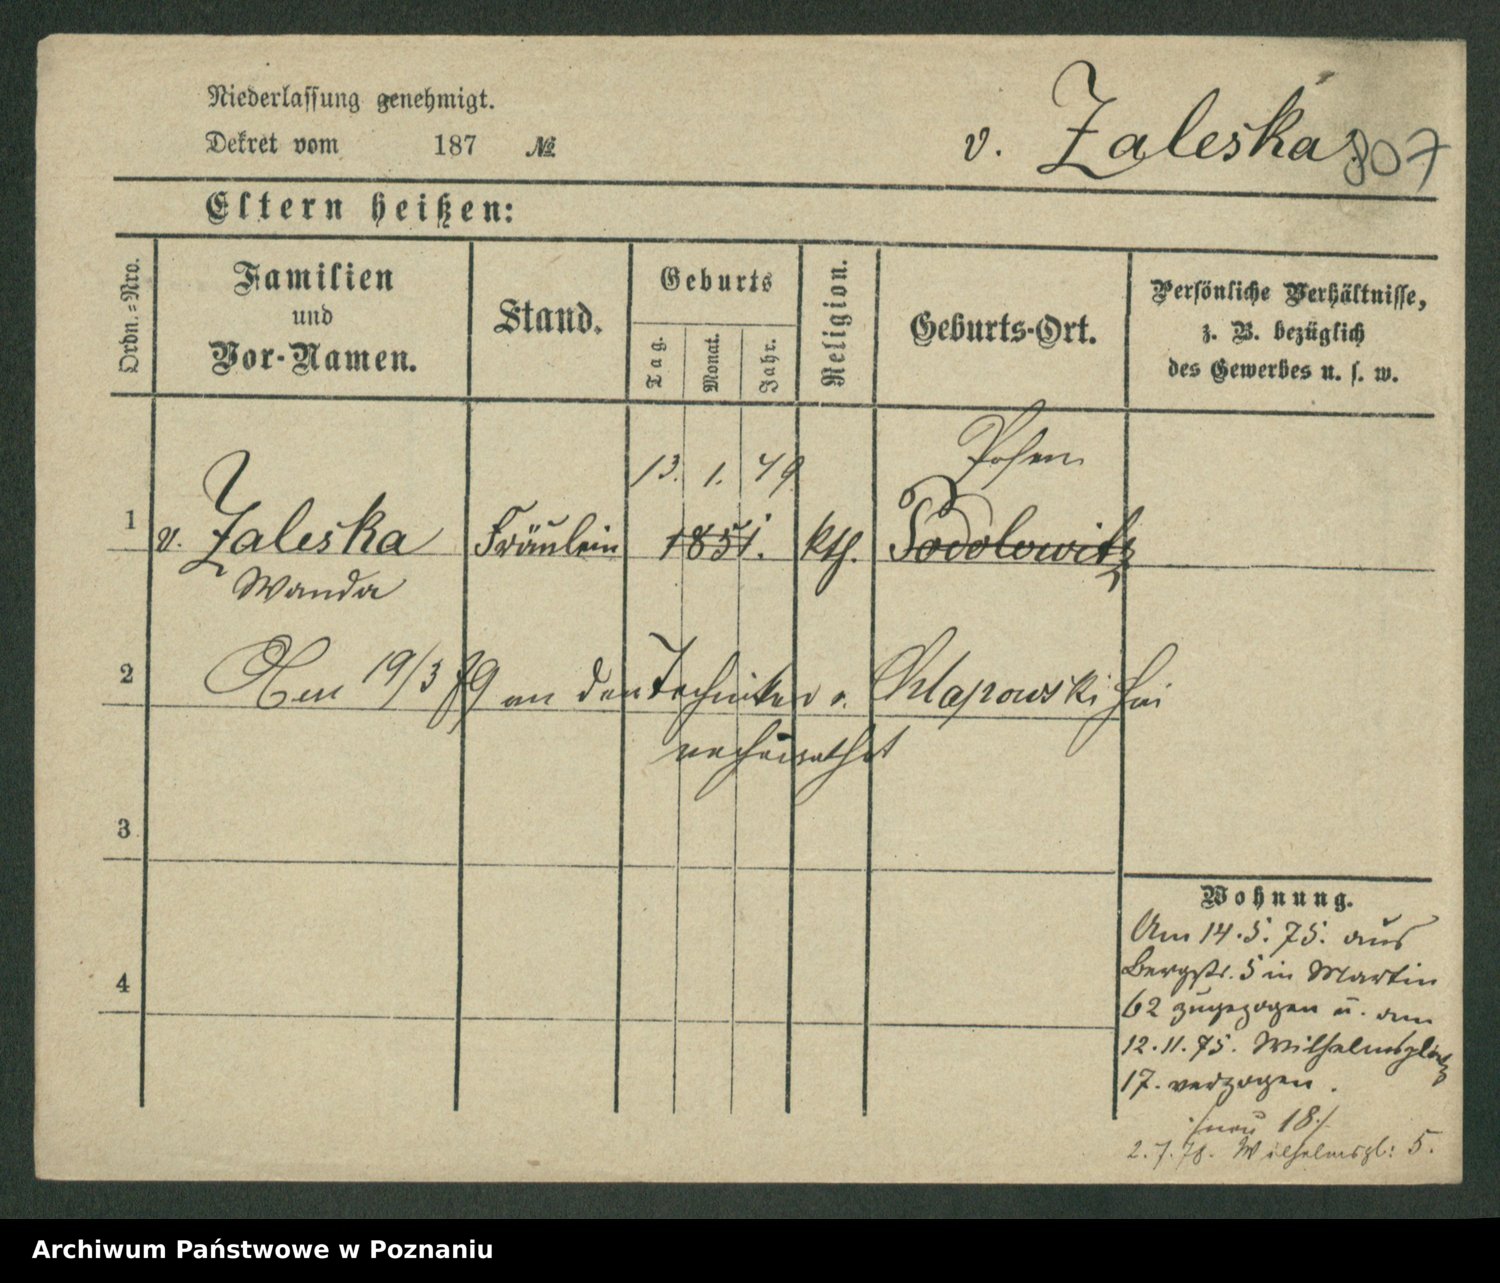 Niederlassung genehmigt.
Dekret vom 187 №
v. Zaleska
807
Eltern heißen:
Ordn.=Nro.
Familien
und
Vor-Namen.
Stand.
Geburts
Tag.
Monat.
Jahr.
Religion.
Geburts-Ort.
Persönliche Verhältnisse,
z. B. bezüglich
des Gewerbes u. s. w.
13. 1. 49 Posen
1 v. Zaleska Fräulein 1851. kth. Podolowitz
Wanda
2 Am 19/3 79 an den Techniker v. Chlapowski hier
verheirathet
3
4
Wohnung.
Am 14.5.75. aus
Bergstr. 5 in Martin
62 zugezogen u. am
12.11.75. Wilhelmsplatz
17. verzogen.
/neu 18/
2.7.78. Wilhelmspl: 5.
Archiwum Państwowe w Poznaniu